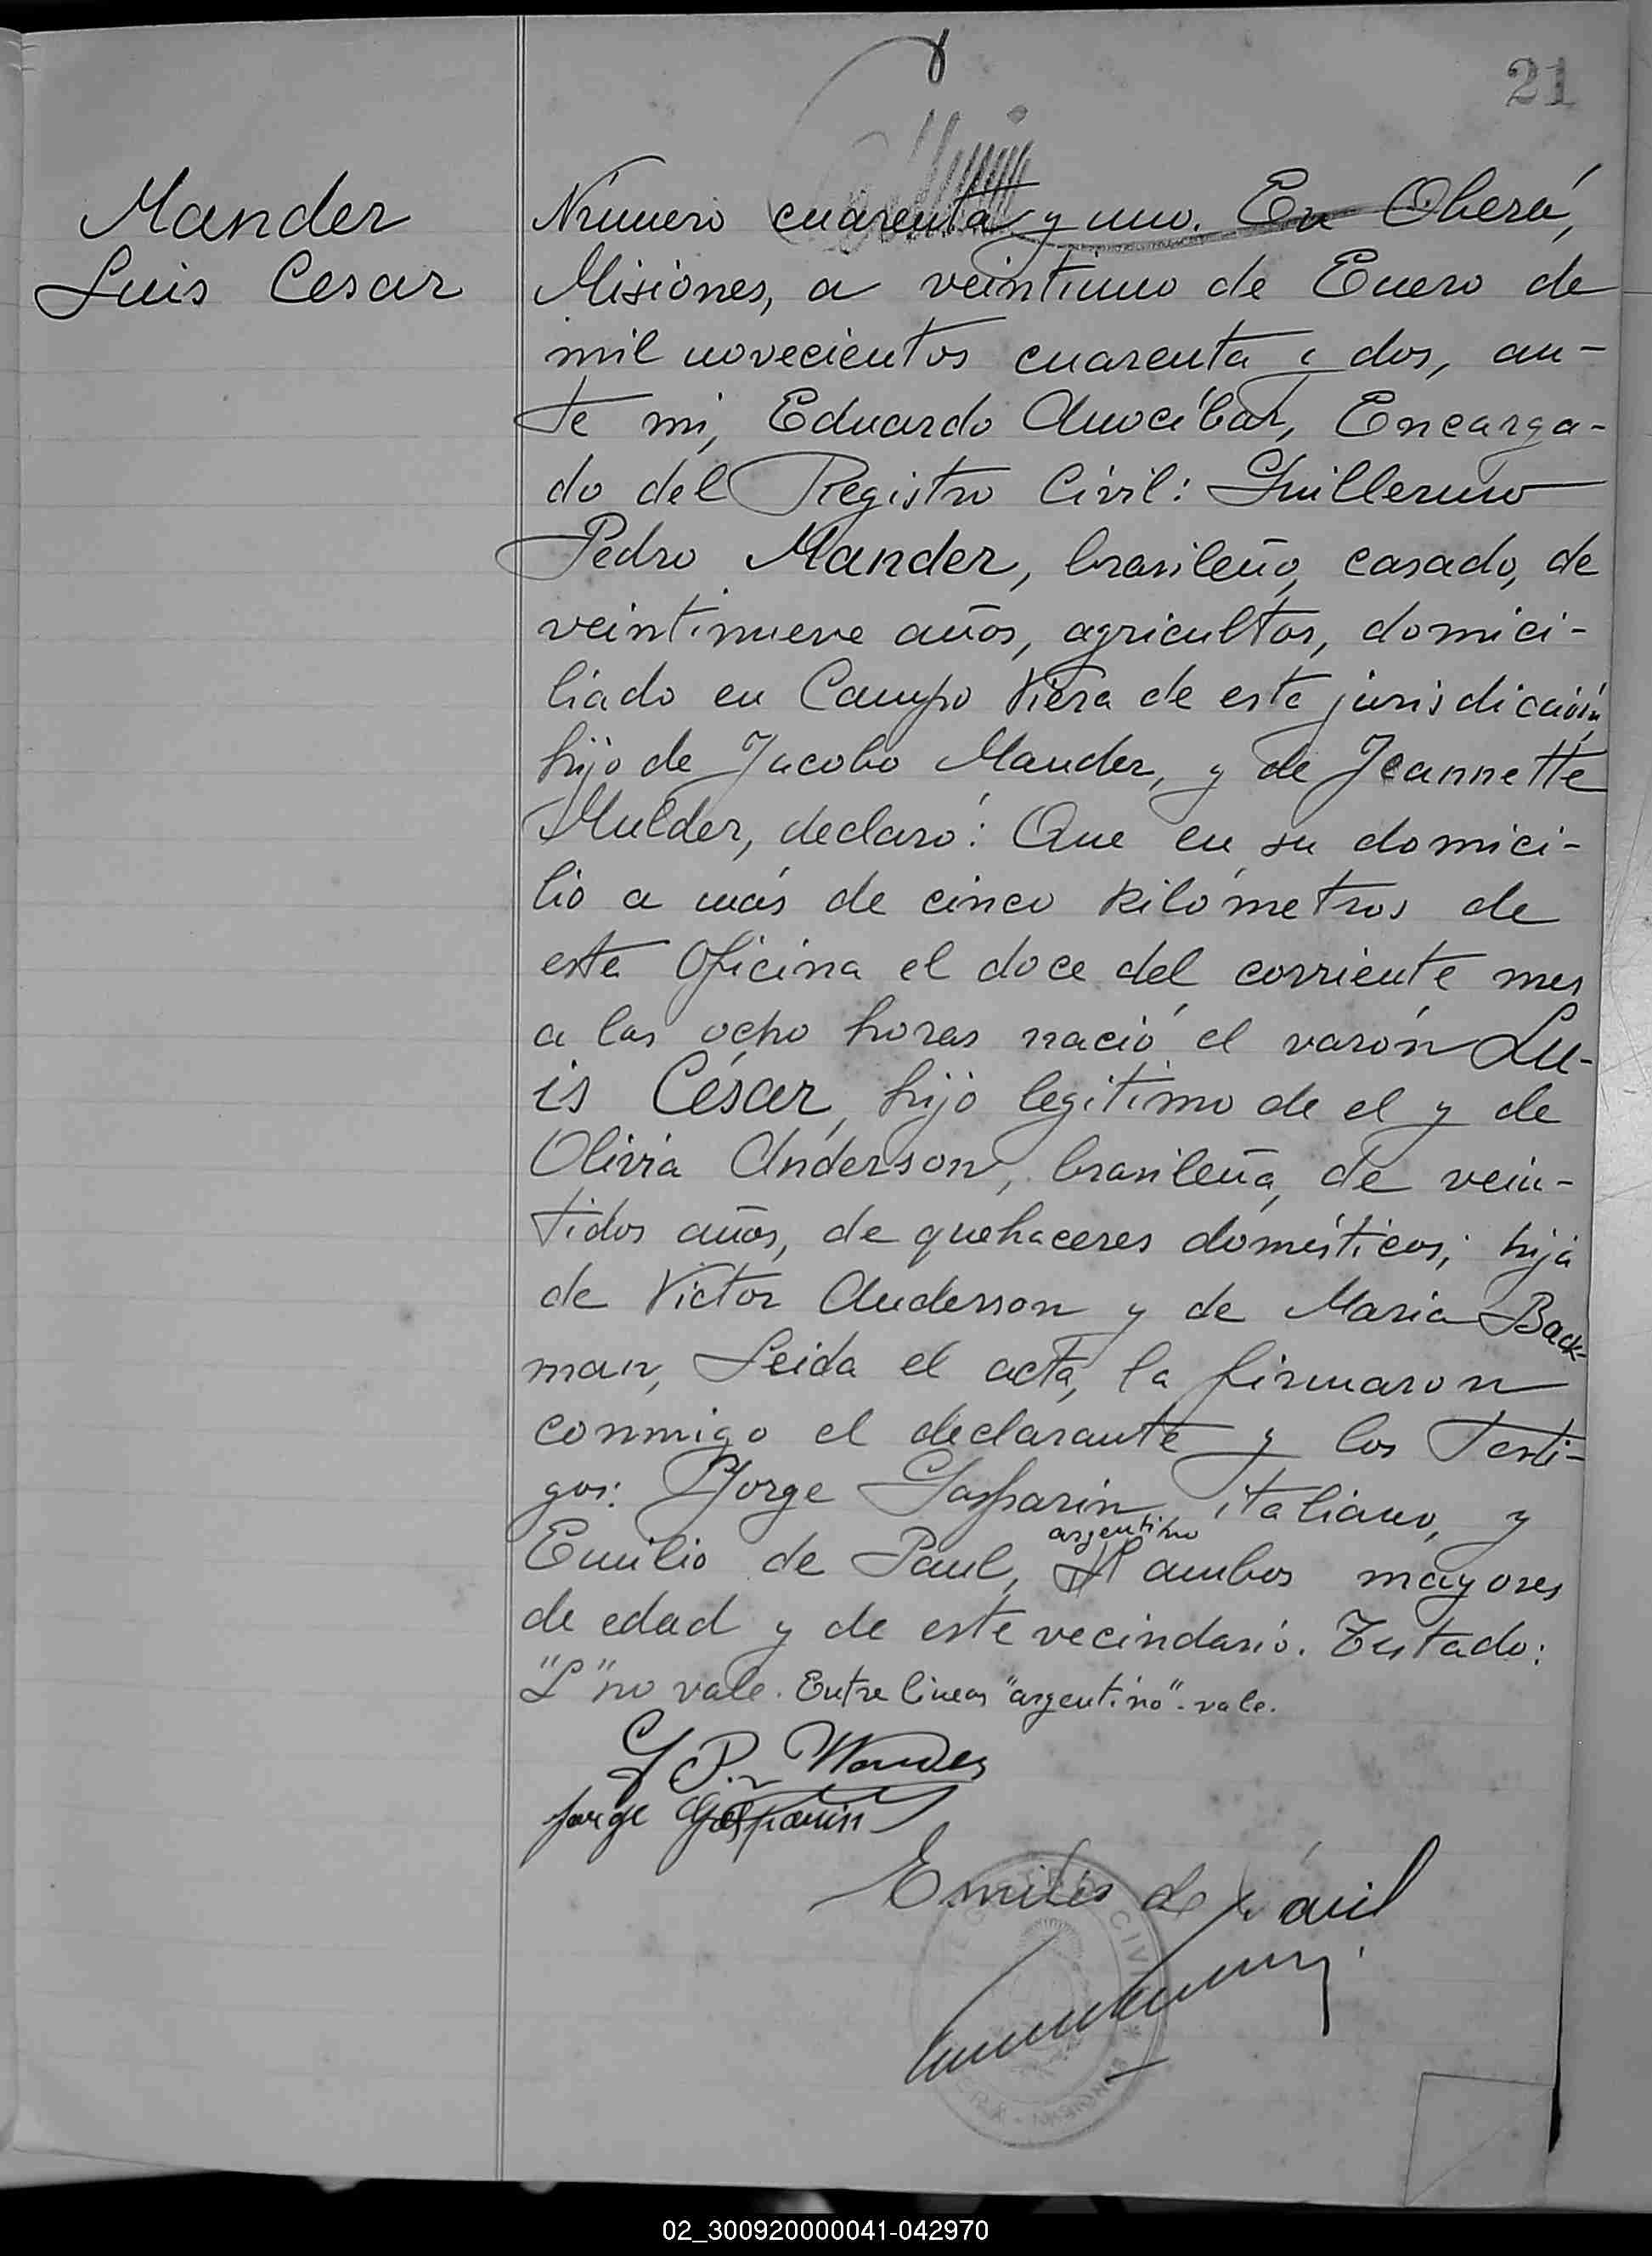 21
Mander
Luis Cesar
Número cuarenta y uno. En Oberá,
Misiones, a veintiuno de Enero de
mil novecientos cuarenta i dos, an-
te mi, Eduardo Anocíbar, Encarga-
do del Registro Civil: Guillermo
Pedro Mander, brasileño, casado, de
veintinueve años, agricultor, domici-
liado en Campo Viera de esta jurisdicción,
hijo de Jacobo Mander, y de Jeannette
Mulder, declaró: Que en su domici-
lio a más de cinco kilómetros de
esta Oficina el doce del corriente mes
a las ocho horas nació el varón Lu-
is César, hijo legítimo de el y de
Olivia Anderson, brasileña, de vein-
tidos años, de quehaceres domésticos; hija
de Victor Anderson y de Maria Back-
man, Leida el acta, la firmaron
conmigo el declarante y los Testi-
gos: Jorge Gasparin, italiano, y
argentino
Emilio de Paul, ambos mayores
de edad y de este vecindario. Testado:
"L" no vale. Entre lineas "argentino". vale.
G. P. Mander
Jorge Gasparin
Emilio de Paul
REGISTRO CIVIL
OBERÁ - MISIONES
02_300920000041-042970